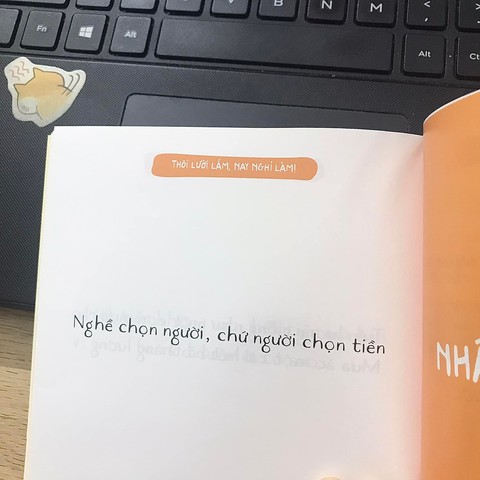 Fn
Alt
B
N
M
<
,
>
.
Alt
Ct
THÔI LƯỜI LẮM, NAY NGHỈ LÀM!
Nghề chọn người, chứ người chọn tiền
NHÀ